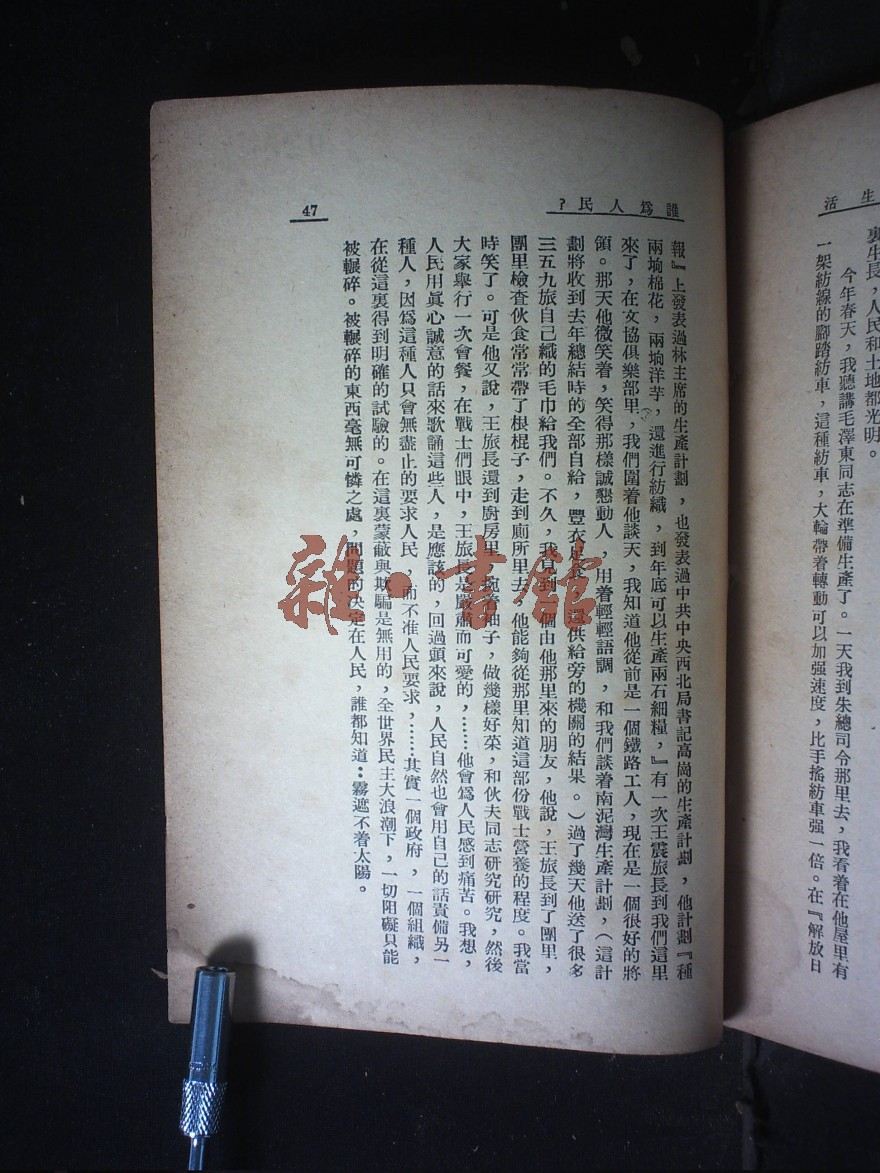 生活
裏生長，人民和土地都光明。
今年春天，我聽講毛澤東同志在準備生產了。一天我到朱總司令那里去，我看着在他屋里有
一架紡線的腳踏紡車，這種紡車，大輪帶着轉動可以加强速度，比手搖紡車强一倍。在『解放日
誰爲人民？
47
報』上發表過林主席的生產計劃，也發表過中共中央西北局書記高崗的生產計劃，他計劃『種
兩垧棉花，兩垧洋芋，還進行紡織，到年底可以生產兩石細糧，』有一次王震旅長到我們這里
來了，在文協俱樂部里，我們圍着他談天，我知道他從前是一個鐵路工人，現在是一個很好的將
領。那天他微笑着，笑得那樣誠懇動人，用着輕輕語調，和我們談着南泥灣生產計劃，（這計
劃將收到去年總結時的全部自給，豐衣足食，還供給旁的機關的結果。）過了幾天他送了很多
三五九旅自己織的毛巾給我們。不久，我見到一個由他那里來的朋友，他說，王旅長到了團里，
團里檢查伙食常常帶了根棍子，走到廁所里去，他能夠從那里知道這部份戰士營養的程度。我當
時笑了。可是他又說，王旅長還到廚房里，挽着袖子，做幾樣好菜，和伙夫同志研究研究，然後
大家舉行一次會餐，在戰士們眼中，王旅長是嚴肅而可愛的，……他會爲人民感到痛苦。我想，
人民用眞心誠意的話來歌誦這些人，是應該的，回過頭來說，人民自然也會用自己的話責備另一
種人，因爲這種人只會無盡止的要求人民，而不准人民要求，……其實一個政府，一個組織，
在從這裏得到明確的試驗的。在這裏蒙蔽與欺騙是無用的，全世界民主大浪潮下，一切阻礙只能
被輾碎。被輾碎的東西毫無可憐之處，問題的決定在人民，誰都知道：霧遮不着太陽。
雜·書館